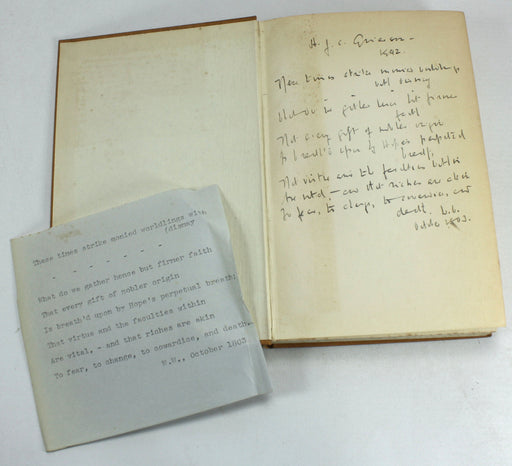 H. J. C. Grierson
1902.
These times strike monied worldlings
with dismay
What do we gather hence but firmer
faith
That every gift of nobler origin
Is breath'd upon by Hope's perpetual
breath;
That virtue and the faculties within
Are vital, – and that riches are akin
To fear, to change, to cowardice, and
death.
These times strike monied worldlings with
(dismay
- - - - - - -
What do we gather hence but firmer faith
That every gift of nobler origin
Is breath'd upon by Hope's perpetual breath;
That virtue and the faculties within
Are vital, - and that riches are akin
To fear, to change, to cowardice, and death.
October 1903